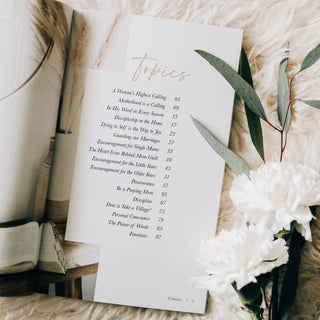 Topics
A Woman's Highest Calling 05
Motherhood is a Calling 09
In His Word in Every Season 13
Discipleship in the Home 17
Dying to Self is the Way to Joy 23
Guarding our Marriages 27
Encouragement for Single Moms 33
The Heart Issue Behind Mom Guilt 39
Encouragement for the Little Years 45
Encouragement for the Older Years 51
Perseverance 57
Be a Praying Mom 63
Discipline 67
Does it Take a Village? 73
Personal Conscience 79
The Power of Words 83
Emotions 87
Contents / 3